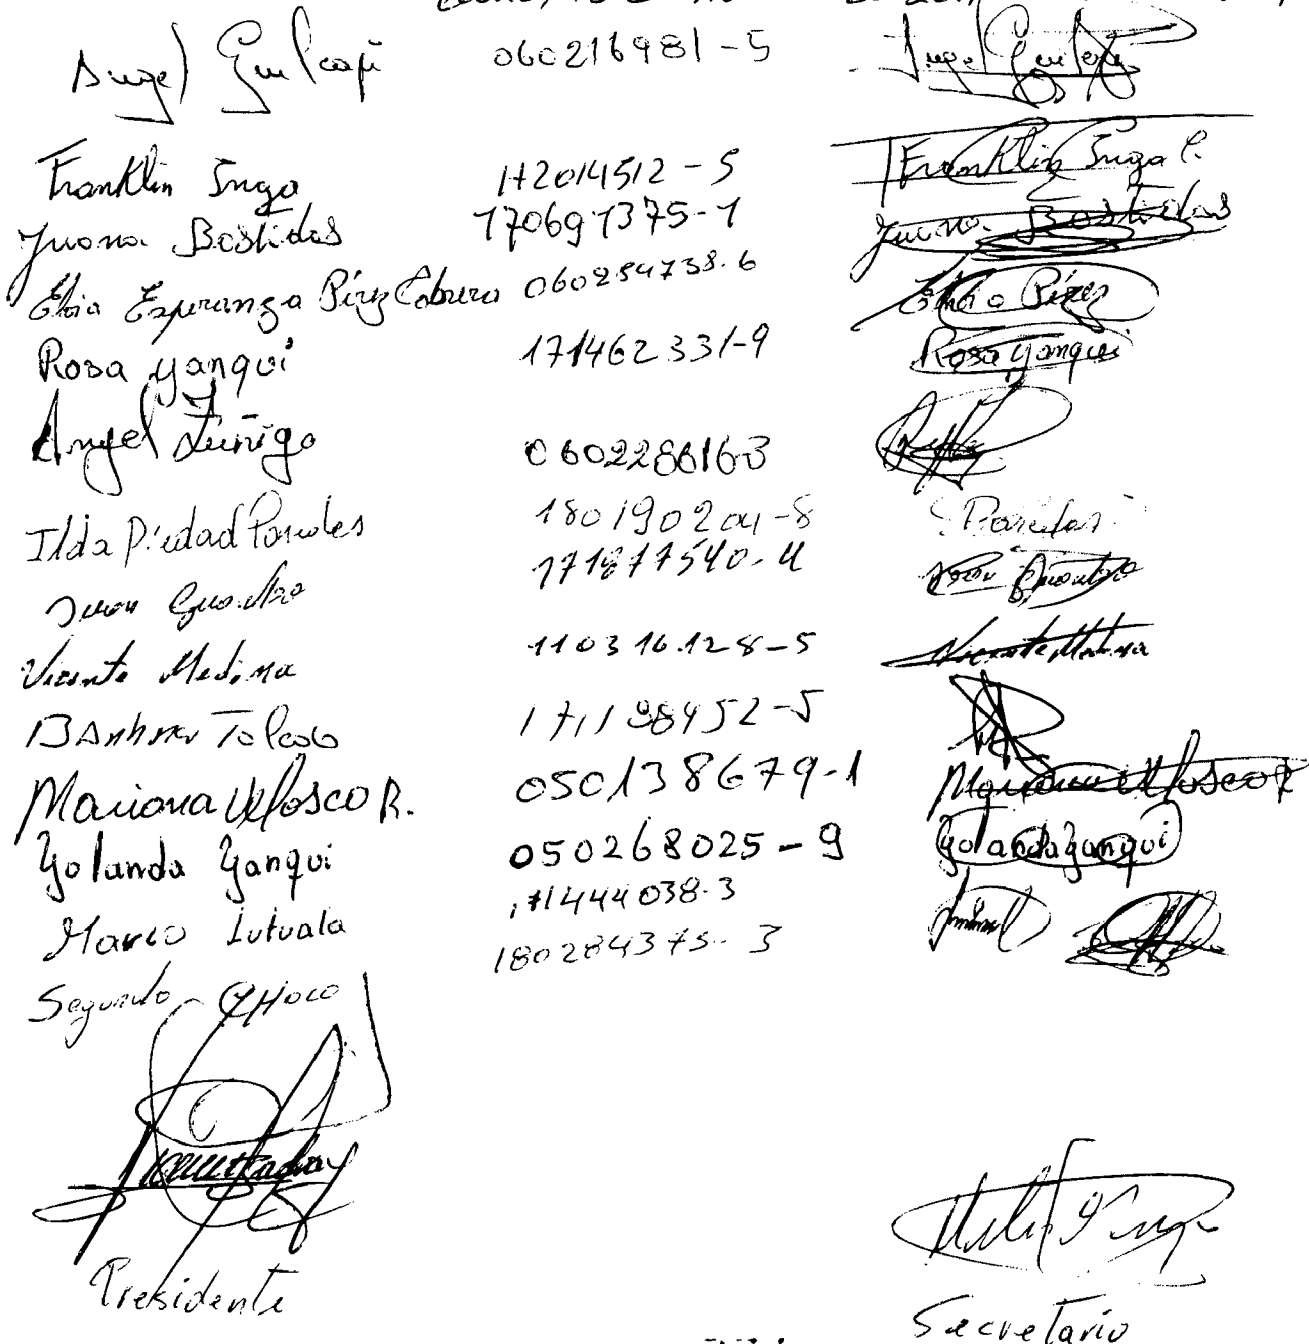 Angel Guilcapi 060216981-5 Angel Guilcapi
Franklin Inga 172014512-5 Franklin Inga C.
Juana Bastidas 170691375-1 Juana Bastidas
Elsia Esperanza Pérez Cabrera 060254738-6 Pérez
Rosa yanqui 171462331-9 Rosa yanqui
Angel Zuñiga 060228616-3
Ilda Piedad Paredes 180190204-8 Paredes
Juan 171877540-4 Juan
Vicente Medina 110316128-5 Vicente Medina
Toledo 171198452-5
Mariana Velasco R. 050138679-1 Mariana Velasco R
Yolanda Yanqui 050268025-9 Yolanda Yanqui
Marco Tutuala 171444038-3
Segundo Choco 180284375-3
Presidente
Secretario